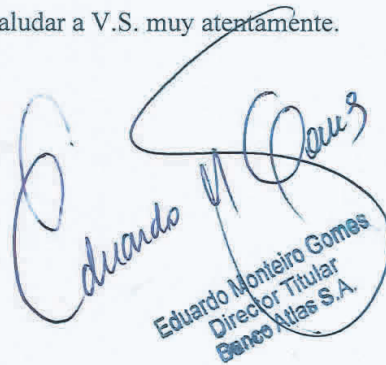 aludar a V.S. muy atentamente.
Eduardo M Gomes
Eduardo Monteiro Gomes
Director Titular
Banco Atlas S.A.